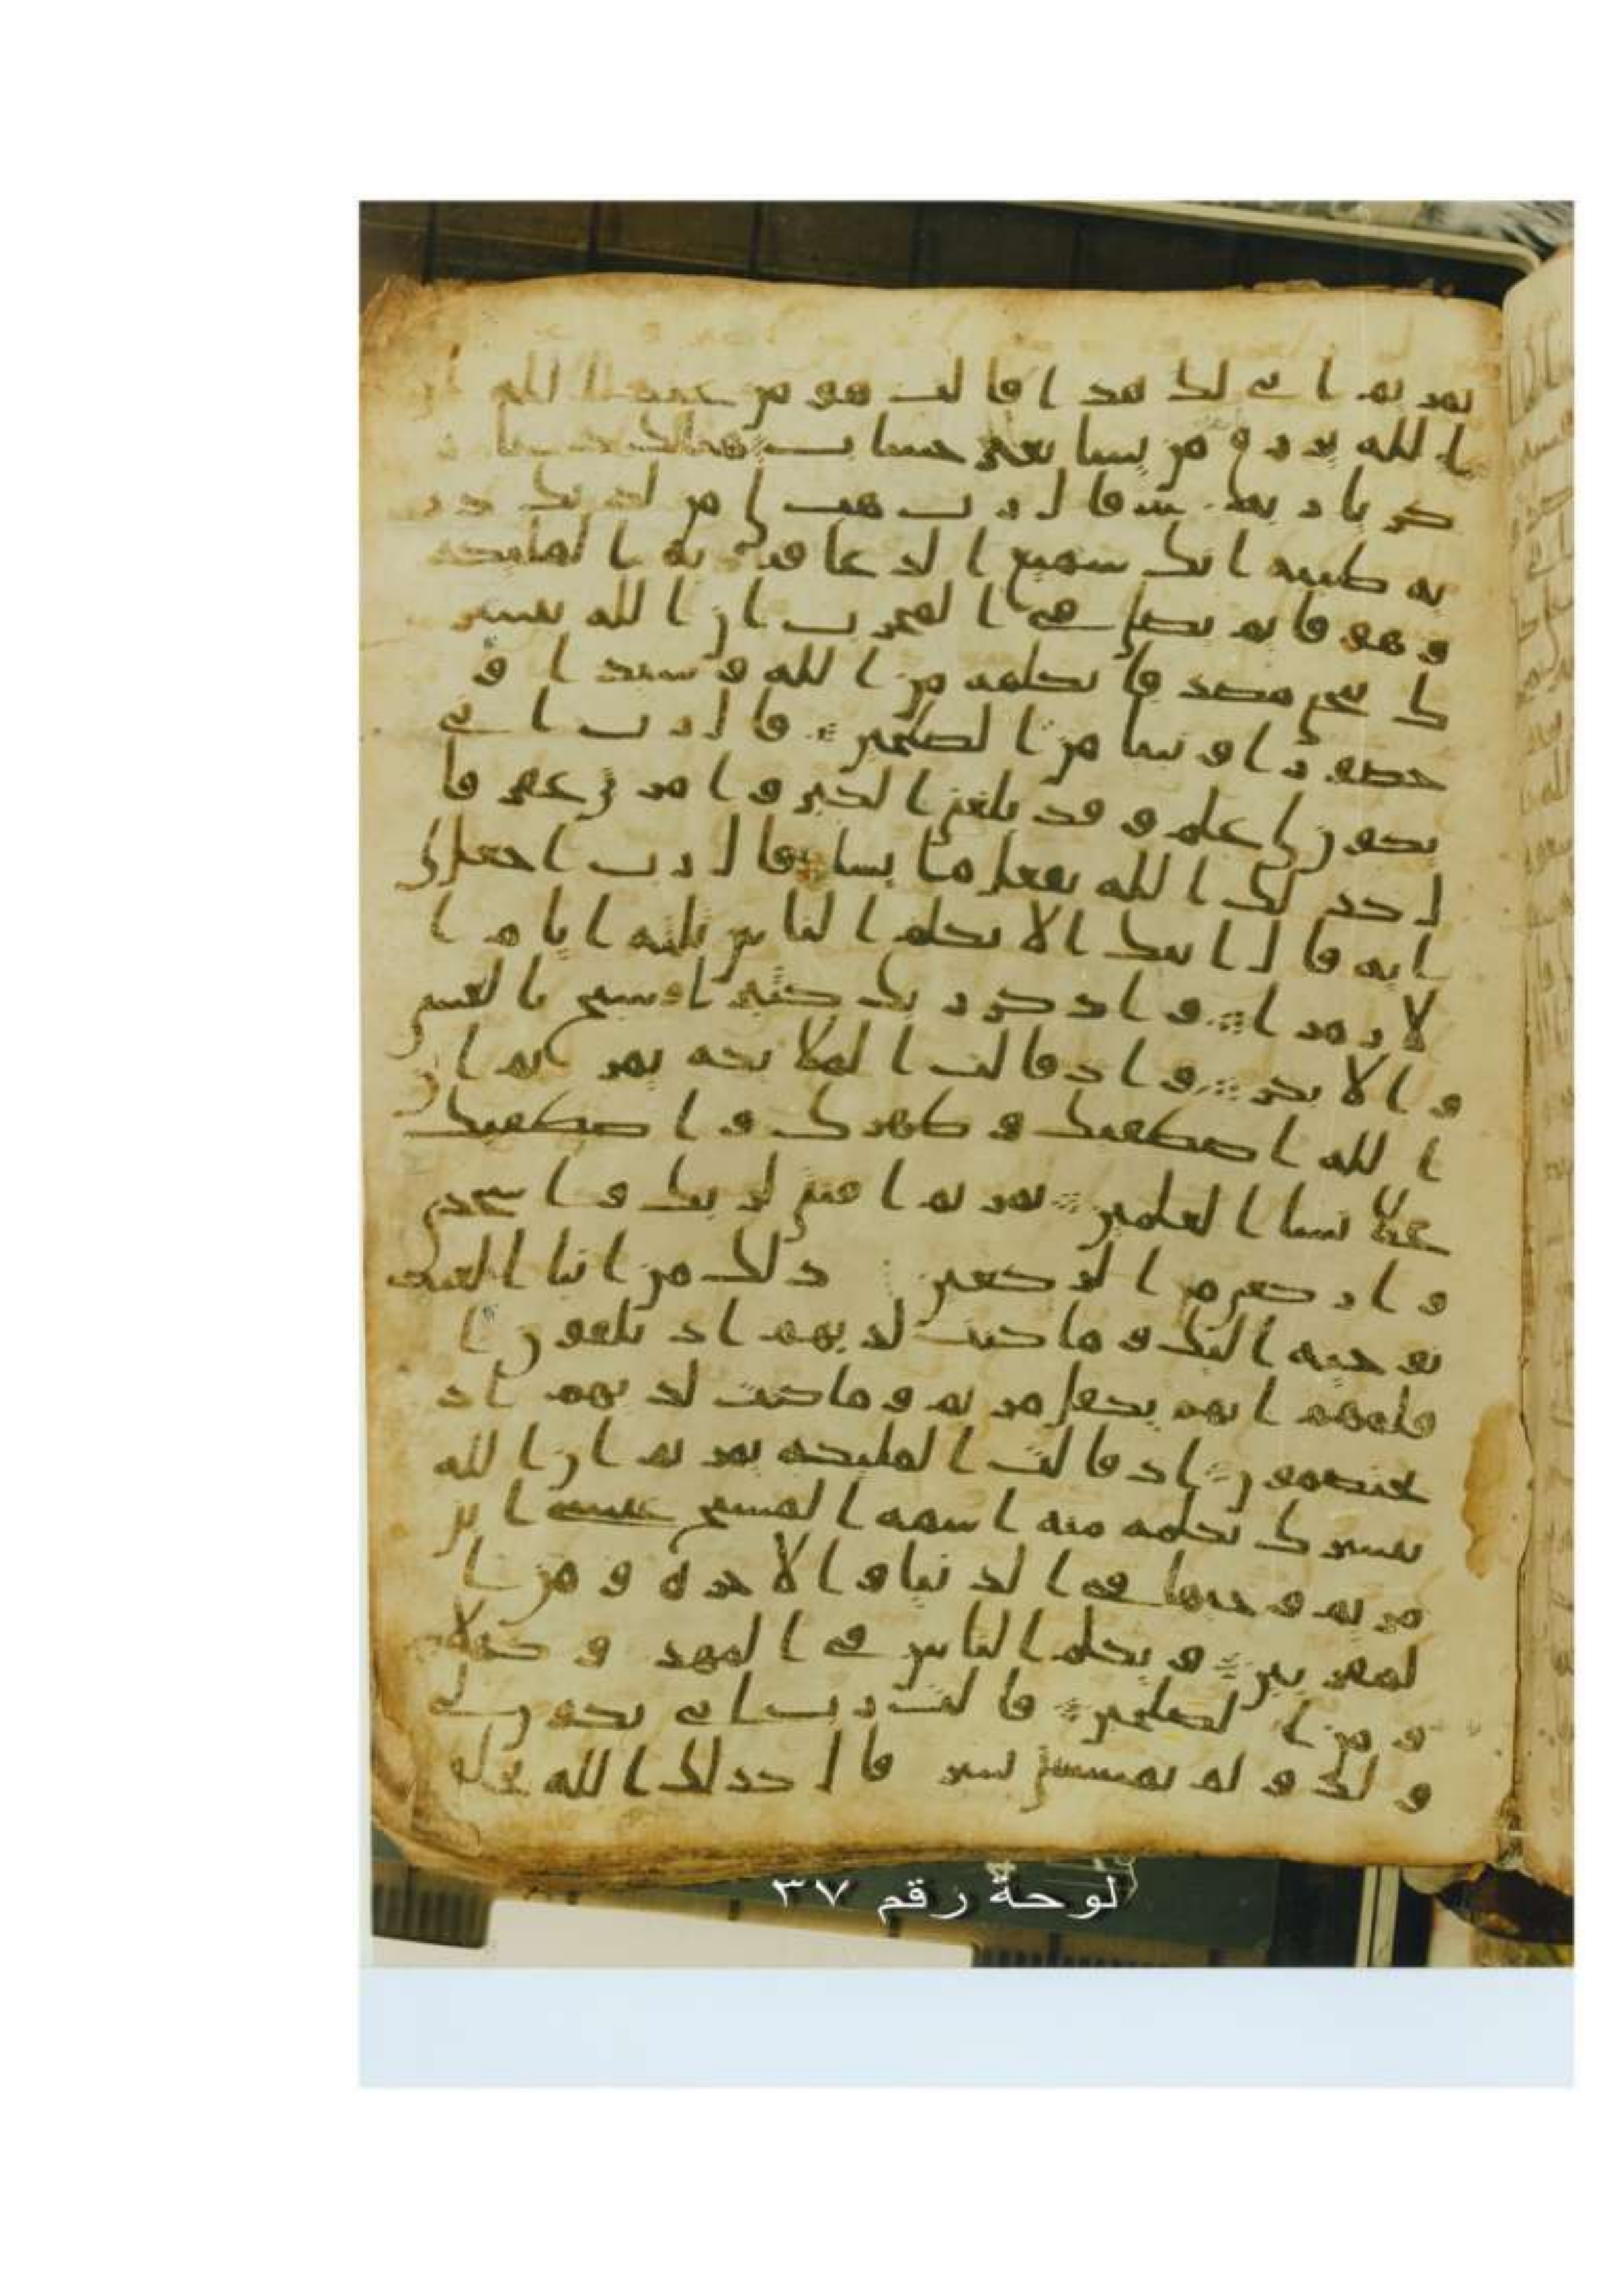 يمريم انى لك هدا قالت هو من عند الله ان
ا لله يررق من يشا بغير حساب هنالك دعا ز
كريا ربه قال رب هب لى من لدنك ذر
يه طيبه انك سميع الدعا فنادته الملئكه
و هو قايم يصلى فى المحرب ان الله يبشر
ك بيحيى مصدقا بكلمه من الله و سيدا و
حصورا و نبيا من الصلحين قال رب انى
يكون لى غلم و قد بلغنى الكبر و امراتى عقر قا
ل كذلك الله يفعل ما يشا قال رب اجعل لى
ايه قال ايتك الا تكلم الناس ثلثه ايام ا
لا رمزا و اذكر ربك كثيرا و سبح بالعشى
و الابكر و اذ قالت الملائكه يمريم ان
ا لله اصطفيك و طهرك و اصطفيك
على نسا العلمين يمريم اقنتى لربك و اسجدى
و اركعى مع الركعين ذلك من انبا الغيب
نوحيه اليك و ما كنت لديهم اذ يلقون ا
قلمهم ايهم يكفل مريم و ما كنت لديهم اذ
يختصمون اذ قالت الملئكه يمريم ان الله
يبشرك بكلمه منه اسمه المسيح عيسى ابن
مريم وجيها فى الدنيا و الاخره و من ا
لمقربين و يكلم الناس فى المهد و كهلا
و من الصلحين قالت رب انى يكون لى
و لد و لم يمسسنى بشر قال كذلك الله يخلق
لوحة رقم ٣٧